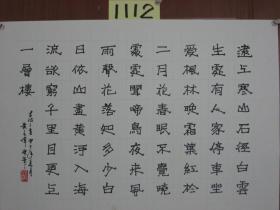 1112
遠上寒山石徑白雲
生處有人家停車坐
愛楓林晚霜葉紅於
二月花春眠不覺曉
處處聞啼鳥夜來風
雨聲花落知多少白
日依山盡黃河入海
流欲窮千里目更上
一層樓